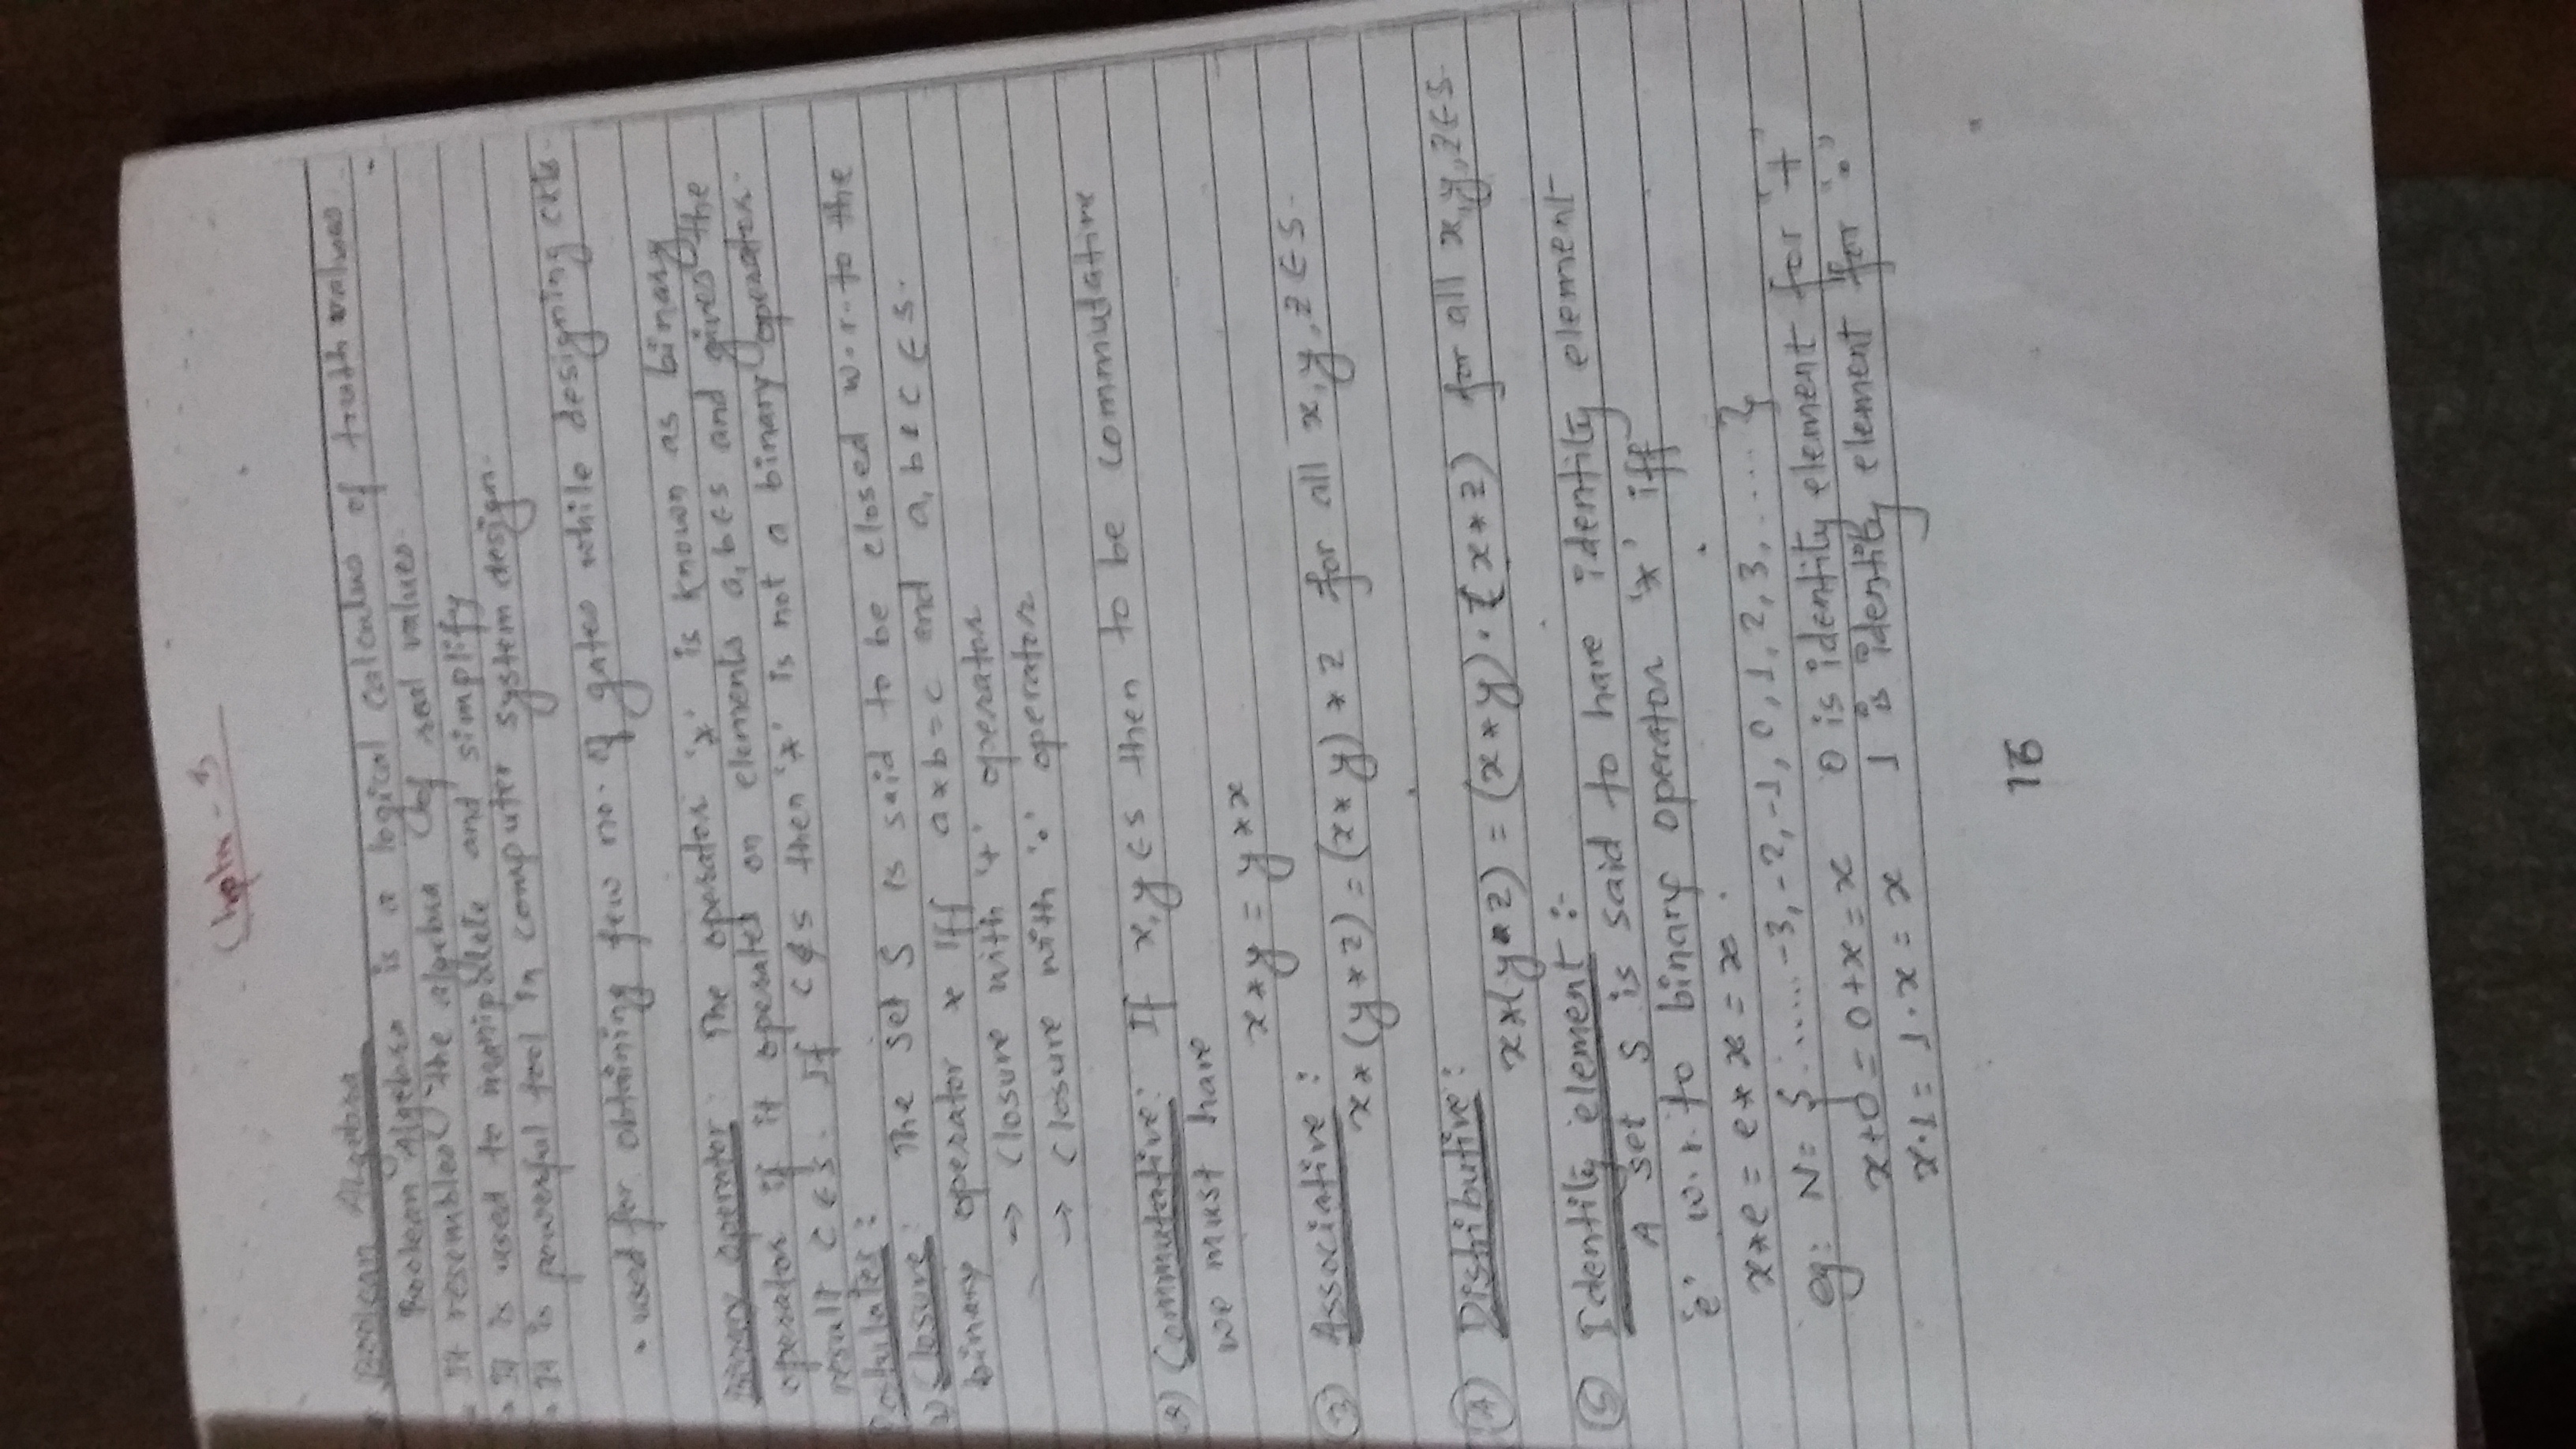 Chapter - 3
Boolean Algebra
Boolean Algebra is a logical calculus of truth values
- It resembles the algebra of real values.
• It is used to manipulate and simplify
• It is powerful tool in computer system design.
• used for obtaining few no. of gates while designing ckts.
Binary operator: The operator '*' is known as binary
operator if it operates on elements a, b ∈ S and gives the
result C ∈ S. If C ∉ S then '*' is not a binary operator.
Postulates:
1) Closure: The set S is said to be closed w.r. to the
binary operator * iff a * b = c and a, b & c ∈ S.
→ Closure with '+' operator
→ Closure with '•' operator
2) Commutative: If x, y ∈ S then to be commutative
we must have
x * y = y * x
③ Associative:
x * (y * z) = (x * y) * z for all x, y, z ∈ S.
④ Distributive:
x * (y • z) = (x * y) • (x * z) for all x, y, z ∈ S.
⑤ Identity element :-
A set S is said to have identity element
'e' w.r. to binary operator '*' iff
x * e = e * x = x.
eg: N = { ...... -3, -2, -1, 0, 1, 2, 3, ..... }
x + 0 = 0 + x = x 0 is identity element for "+"
x • 1 = 1 • x = x 1 is identity element for "•"
16